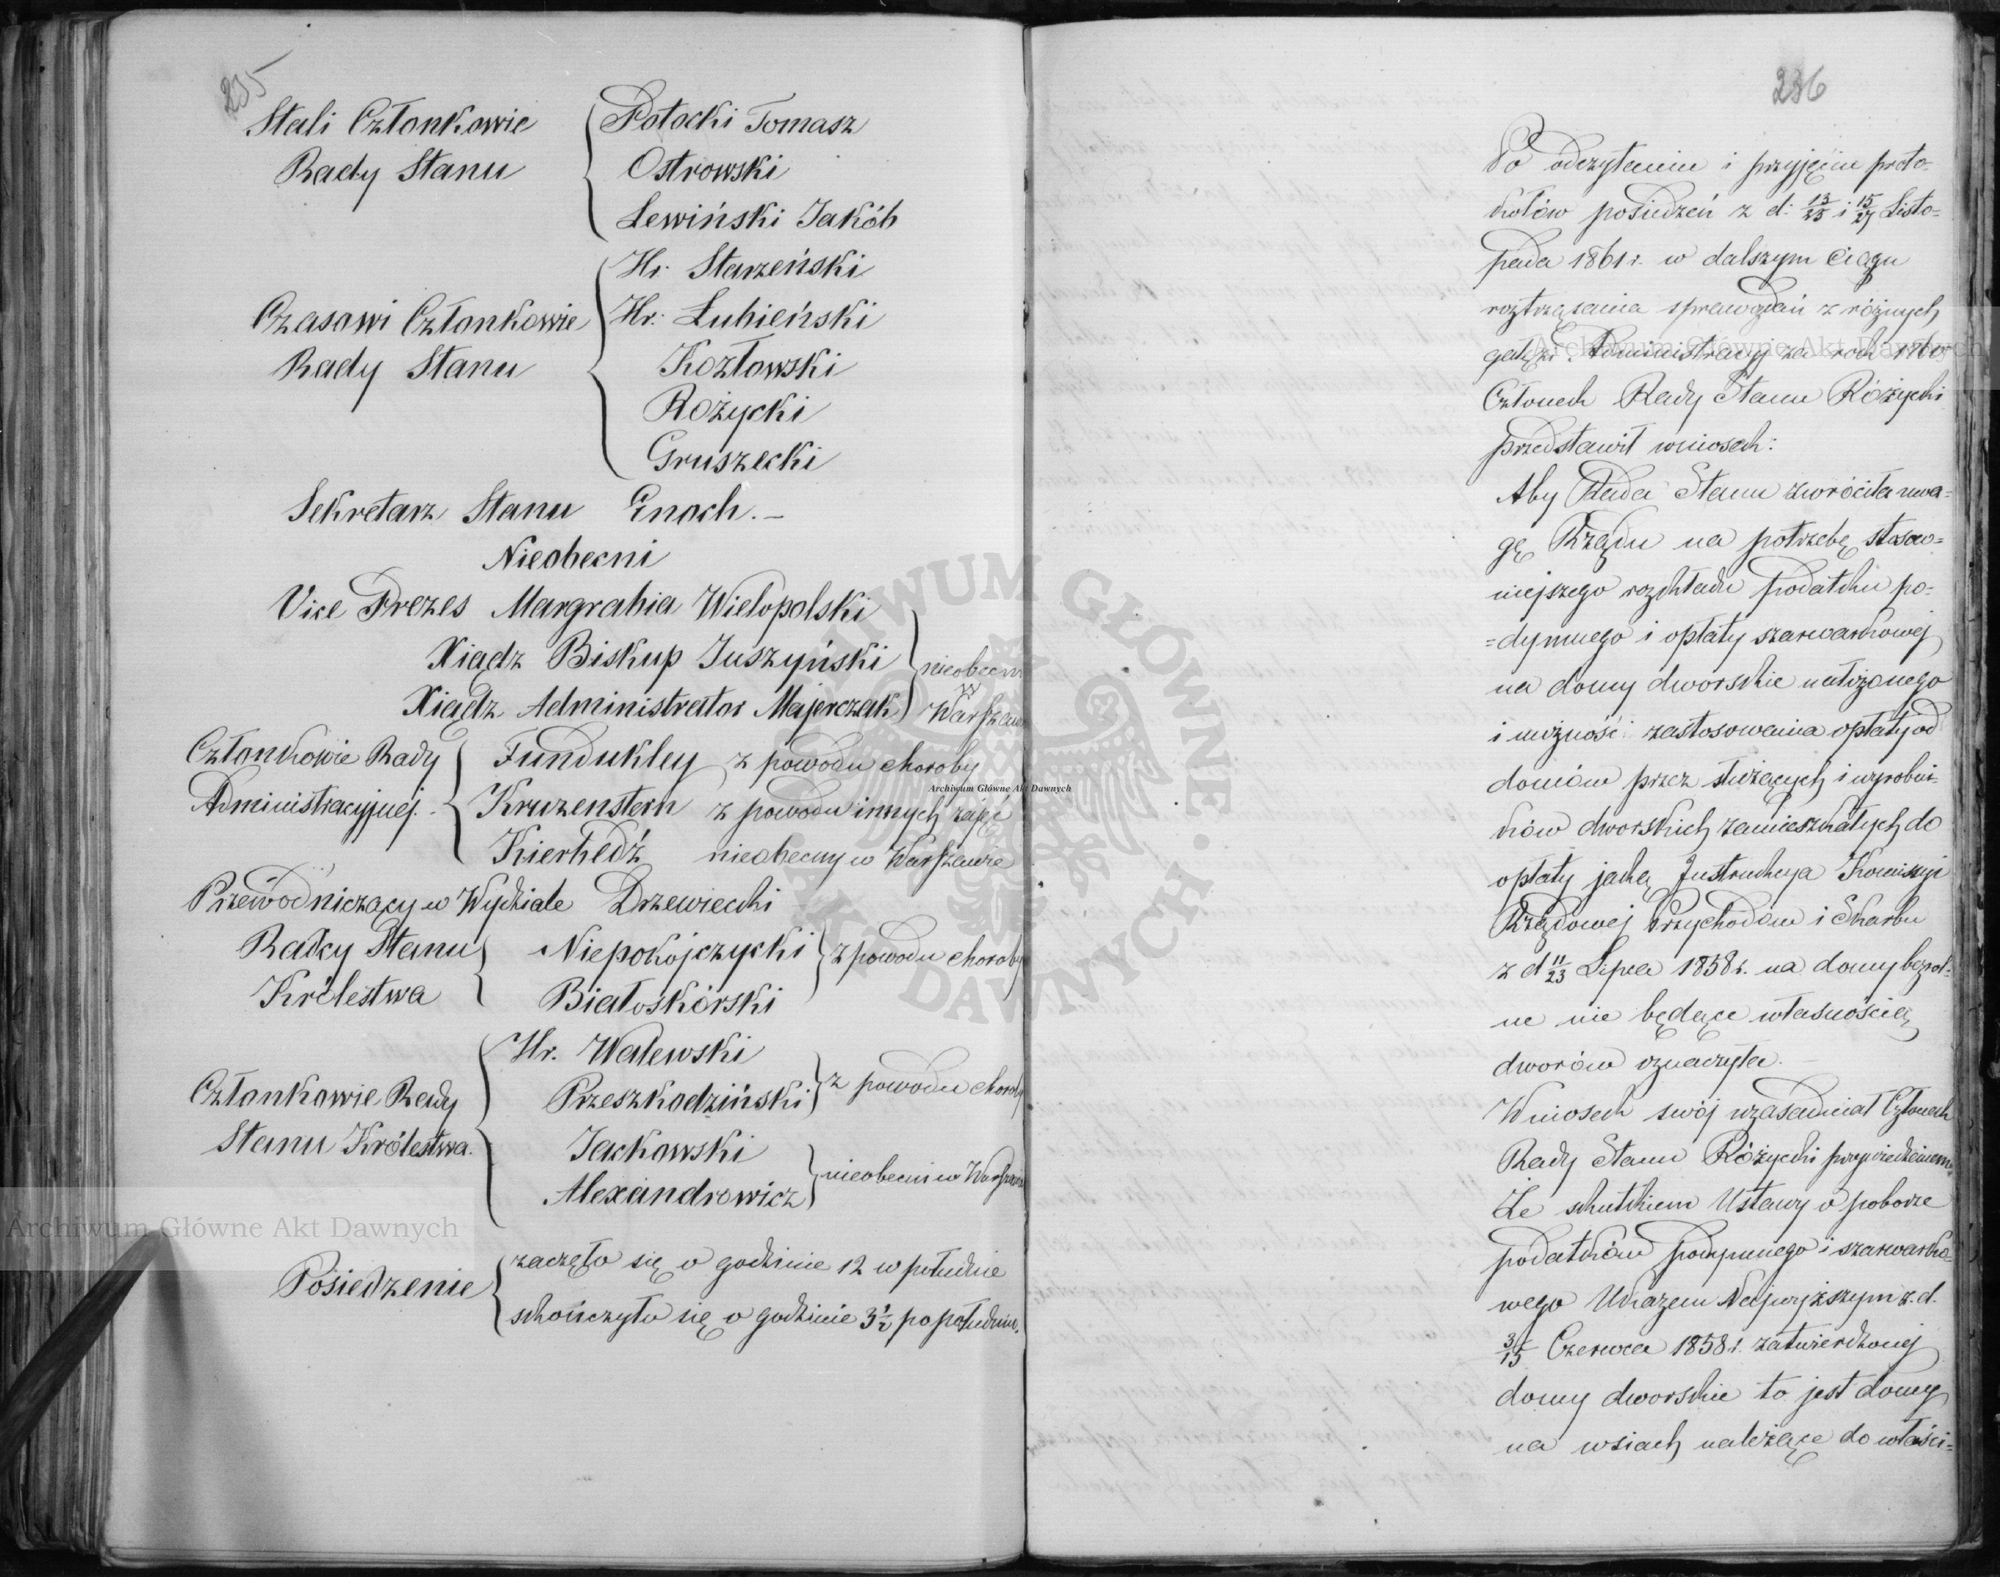 235
Stali Członkowie Rady Stanu
Potocki Tomasz
Ostrowski
Lewiński Jakób
Czasowi Członkowie Rady Stanu
Hr. Starzeński
Hr. Łubieński
Kozłowski
Rożycki
Gruszecki
Sekretarz Stanu Enoch. —
Nieobecni
Vice Prezes Margrabia Wielopolski
Xiądz Biskup Juszyński
Xiądz Administrator Majerczak
nieobecni w Warszawie
Członkowie Rady Administracyjnej.
Fundukley z powodu choroby
Kruzenstern z powodu innych zajęć
Kierbedź nieobecny w Warszawie
Przewodniczący w Wydziale Drzewiecki
Radcy Stanu Królestwa
Niepokójczycki
Białoskórski
z powodu choroby
Członkowie Rady Stanu Królestwa.
Hr. Walewski
Przeszkodziński
z powodu choroby
Jackowski
Alexandrowicz
nieobecni w Warszawie
Posiedzenie
zaczęło się o godzinie 12 w południe
skończyło się o godzinie 3 1/2 po południu.
236
Po odczytaniu i przyjęciu proto-
kołów posiedzeń z d: 13/25 i 15/27 Listo=
pada 1861 r. w dalszym ciągu
roztrząsania sprawozdań z różnych
gałęzi Administracyi za rok 1860
Członek Rady Stanu Różycki
przedstawił wniosek:
Aby Rada Stanu zwróciła uwa=
gę Rządu na potrzebę stosow=
niejszego rozkładu podatku po=
=dymnego i opłaty szarwarkowej
na domy dworskie nałożonego
i możność zastosowania opłaty od
domów przez służących i wyrobni-
ków dworskich zamieszkałych do
opłaty jaką Instrukcya Kommissyi
Rządowej Przychodów i Skarbu
z d 11/23 Lipca 1858 r. na domy bezrol-
ne nie będące własnością
dworów oznaczyła.
Wniosek swój uzasadniał Członek
Rady Stanu Różycki przywiedzeniem,
że skutkiem Ustawy o poborze
podatków podymnego i szarwarko-
wego Ukazem Najwyższym z. d.
3/15 Czerwca 1858 r. zatwierdzonej
domy dworskie to jest domy
na wsiach należące do właści=
Archiwum Główne Akt Dawnych
Archiwum Główne Akt Dawnych
Archiwum Główne Akt Dawnych
ARCHIWUM GŁÓWNE · AKT DAWNYCH ·